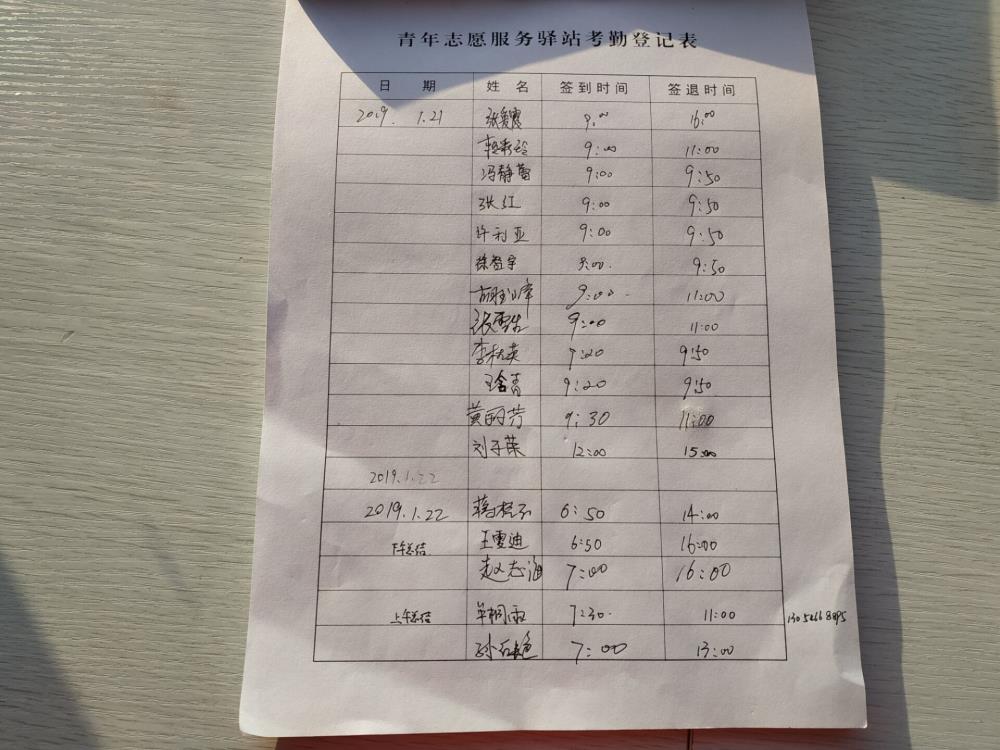 青年志愿服务驿站考勤登记表
日 期 姓 名 签到时间 签退时间
2019. 1.21 张 9:00 16:00
9:00 11:00
冯静 9:00 9:50
张红 9:00 9:50
许利亚 9:00 9:50
徐 宇 9:00. 9:50
胡 峰 9:00. 11:00
张雪 9:00 11:00
李 英 9:20 9:50
王含青 9:20 9:50
黄丽芳 9:30 11:00
刘子荣 12:00 15:00
2019.1.22
2019.1.22 蒋 6:50 14:00
下午总结 王雪迪 6:50 16:00
赵志海 7:00 16:00
上午总结 单桐雨 7:30. 11:00
孙 艳 7:00 13:00